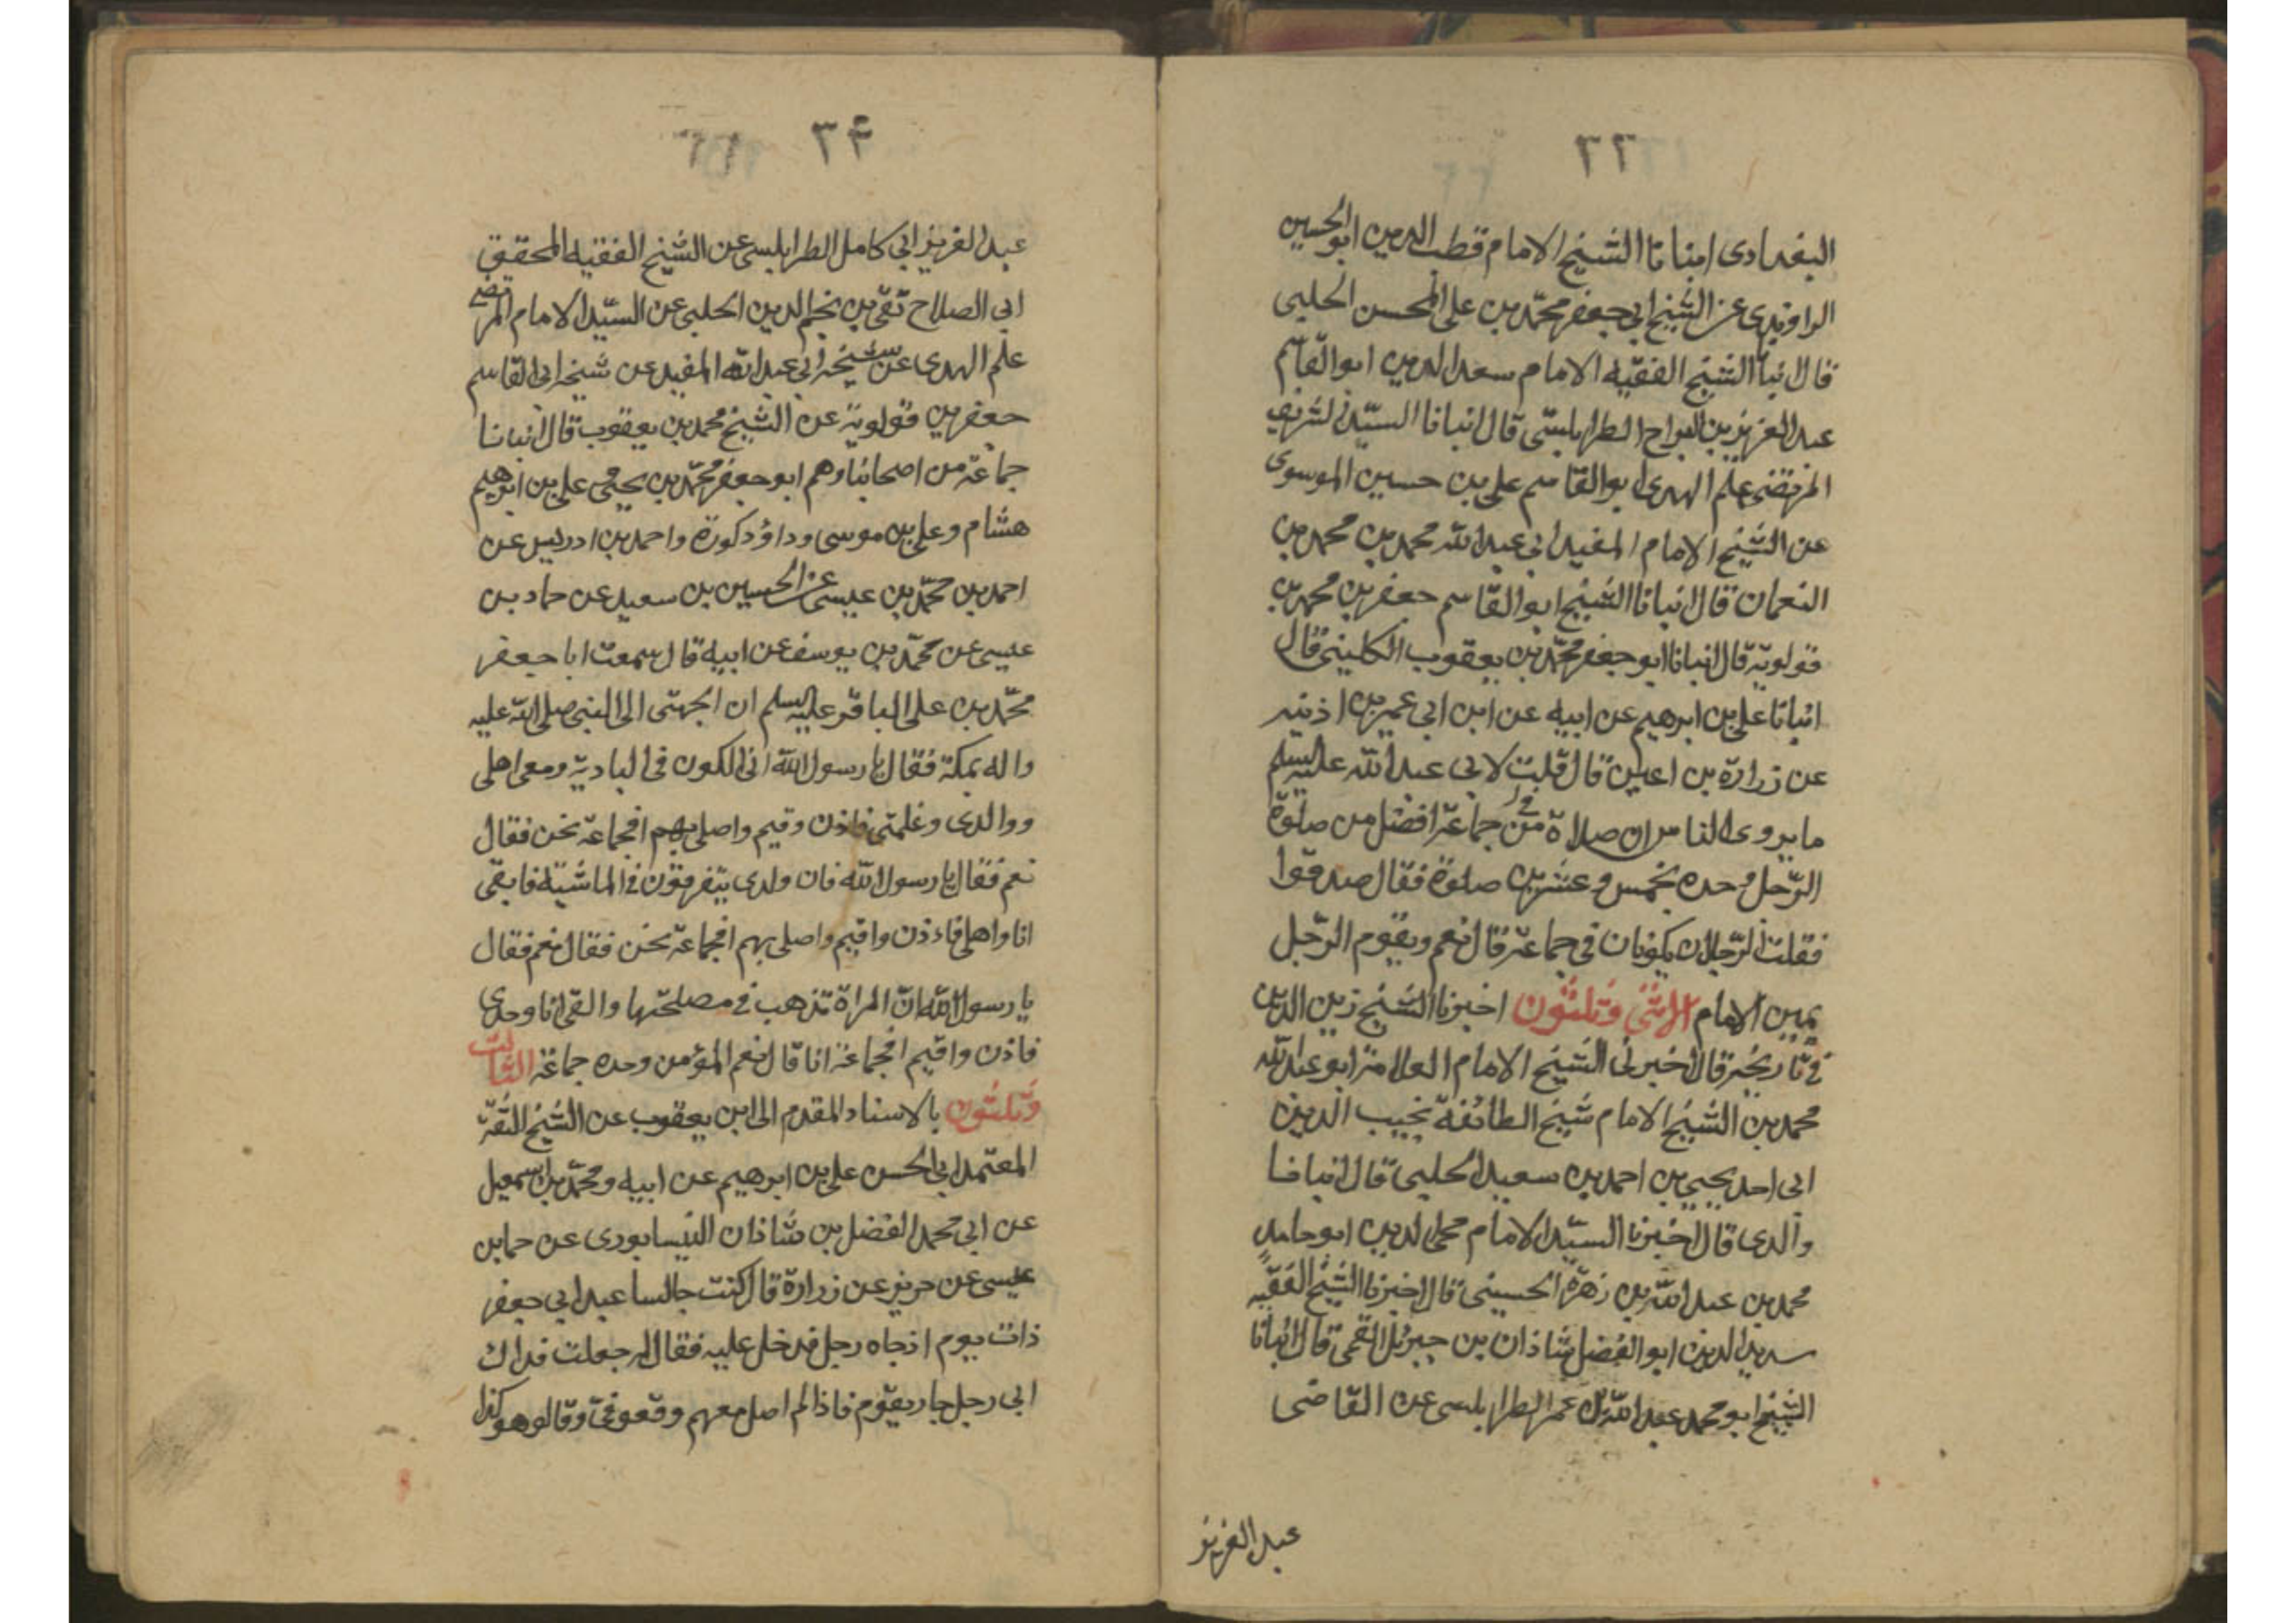 ٢٢
البغدادى انبانا الشيخ الامام قطب الدين ابو الحسين
الراوندى عن الشيخ ابى جعفر محمد بن على المحسن الحلبى
قال انبأ الشيخ الفقيه الامام سعد الدين ابو القاسم
عبد العزيز بن البراح الطرابلسى قال انبانا السيد الشريف
المرتضى علم الهدى ابو القاسم على بن حسين الموسوى
عن الشيخ الامام المفيد ابى عبد الله محمد بن محمد بن
النعمان قال انبانا الشيخ ابو القاسم جعفر بن محمد بن
قولويه قال انبانا ابو جعفر محمد بن يعقوب الكلينى قال
انبانا على بن ابرهيم عن ابيه عن ابن ابى عمير بن اذينه
عن زرارة بن اعين قال قلت لابى عبد الله عليه السلم
ما يروى الناس ان صلاة من فى جماعة افضل من صلوة
الرجل وحده بخمس وعشرين صلوة فقال صدقوا
فقلت الرجلان يكونان فى جماعة قال نعم ويقوم الرجل
يمين الامام الاثنى وثلثون اخبرنا الشيخ زين الدين
فى تاريخه قال اخبرنى الشيخ الامام العلامة ابو عبد الله
محمد بن الشيخ الامام شيخ الطائفة نجيب الدين
ابى احد يحيى بن احمد بن سعيد الحلبى قال انبانا
والدى قال اخبرنا السيد الامام محى الدين ابو حامد
محمد بن عبد الله بن زهرة الحسينى قال اخبرنا الشيخ الفقيه
سديد الدين ابو الفضل شاذان بن جبرئل القمى قال انبانا
الشيخ ابو محمد عبد الله بن عمر الطرابلسى عن القاضى
عبد العزيز
٣۴
عبد العزيز ابى كامل الطرابلسى عن الشيخ الفقيه المحقق
ابى الصلاح تقى بن نجم الدين الحلبى عن السيد الامام المرتضى
علم الهدى عن شيخه ابى عبد الله المفيد عن شيخه ابى القاسم
جعفر بن قولويه عن الشيخ محمد بن يعقوب قال انبانا
جماعة من اصحابنا وهم ابو جعفر محمد بن يحيى على بن ابرهيم
هشام وعلى بن موسى وداؤد كورة واحمد بن ادريس عن
احمد بن محمد بن عيسى عن الحسين بن سعيد عن حماد بن
عيسى عن محمد بن يوسف عن ابيه قال سمعت ابا جعفر
محمد بن على الباقر عليه السلم ان الجهنى الى النبى صلى الله عليه
واله بمكة فقال يا رسول الله انى الكون فى البادية ومعى اهلى
ووالدى وغلمتى فاذن وقيم واصلى بهم افجماعة نحن فقال
نعم فقال يا رسول الله فان ولدى يتفرقون فى الماشية فابقى
انا واهلى فاءذن واقيم واصلى بهم افجماعة نحن فقال نعم فقال
يا رسول الله ان المراة تذهب فى مصلحتها والقى انا وحدى
فاذن واقيم افجماعة انا قال نعم المؤمن وحده جماعة الثالث
وثلثون بالاسناد المقدم الى ابن يعقوب عن الشيخ الثقة
المعتمد ابى الحسن على بن ابرهيم عن ابيه ومحمد بن اسمعيل
عن ابى محمد الفضل بن شاذان النيسابورى عن حمابن
عيسى عن حريز عن زرارة قال كنت جالسا عبد ابى جعفر
ذات يوم اذجاه رجل فدخل عليه فقال له جعلت فداك
ابى رجل جار بقوم فاذا لم اصل معهم وقعو فى وقالو هو كذا